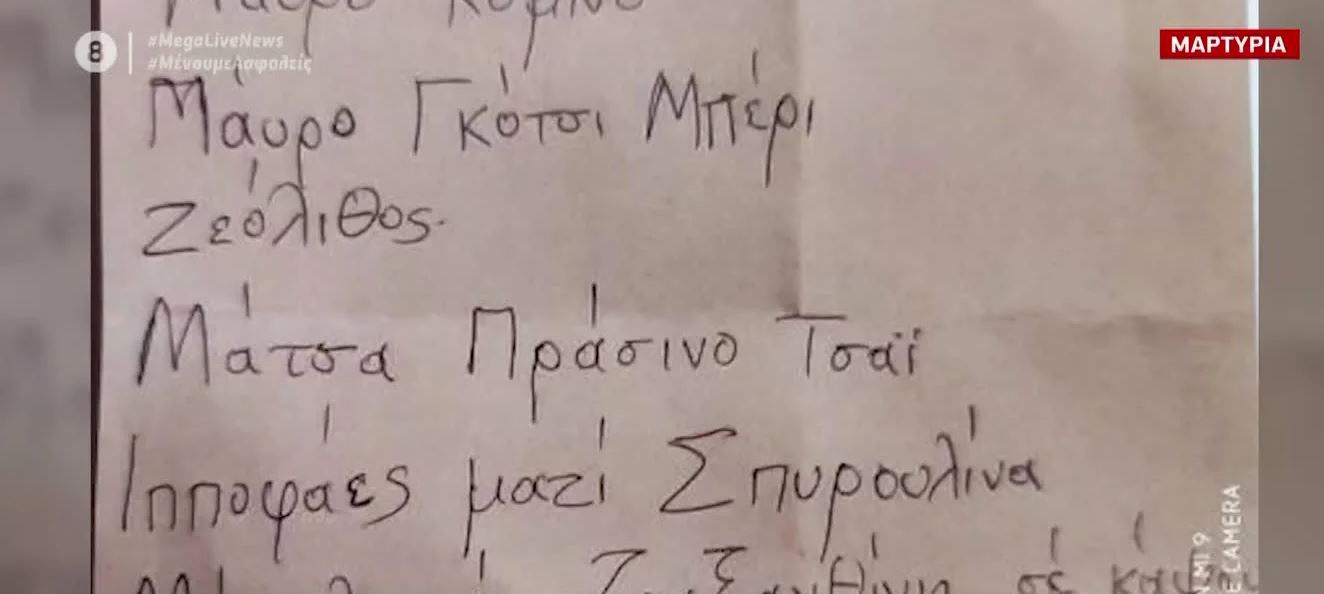 8
#MegaLiveNews
#ΜένουμεΑσφαλείς
ΜΑΡΤΥΡΙΑ
Μάυρο Γκότσι Μπέρι
Ζεόλιθος.
Μάτσα Πράσινο Τσαϊ
Ιπποφάες μαζί Σπυρουλίνα
σέ
MI 9
E CAMERA